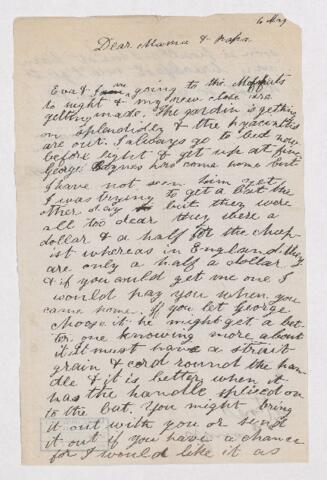 6 May
Dear Mama & Papa.
Eva & I am going to the Moffats
to night & my new close are
getting made. The gardin is getting
on splendidly & the hyacinths
are out. I always go to bed now
before eight & get up at five
George has come home but
I have not seen him yet.
I was trying to get a bat the
other day but they were
all too dear they were a
dollar & a half for the cheap-
ist whereas in England they
are only a half a dollar
& if you could get me one I
would pay you when you
came home. If you let George
choose it he might get a bet-
ter one knowing more about
it it must have a strait
grain & cord round the han-
dle & it is better when it
has the handle spliced on
to the bat. You might bring
it out with you or send
it out if you have a chance
for I would like it as